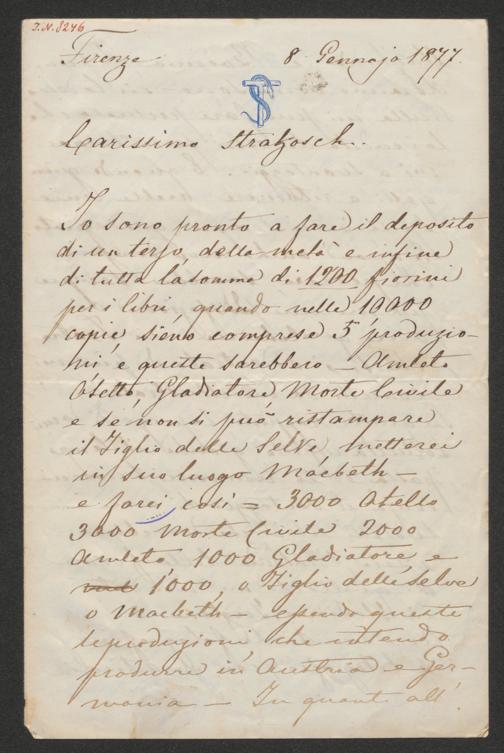 I.N. 8246
Firenze 8 Gennajo 1877.
TS
Carissimo Strakosch.
Io sono pronto a fare il deposito
di un terzo, della metà e infine
di tutta la somma di 1200 fiorini
per i libri, quando nelle 10000
copie sieno comprese 5 produzio-
ni, e queste sarebbero – Amleto
Otello, Gladiatore, Morte Civile
e se non si può ristampare
il Figlio delle Selve, metterei
in suo luogo Macbeth –
e farei così = 3000 Otello
3000 Morte Civile 2000
Amleto, 1000 Gladiatore, e
1000, o Figlio delle selve
o Macbeth – essendo queste
le produzioni, che intendo
produrre in Austria e Ger-
mania – In quanto all'